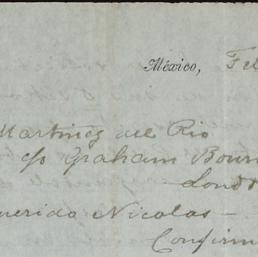 México, Fe
Martínez del Rio
c/o Graham Bour
Lond
uerido Nicolas —
Confirm